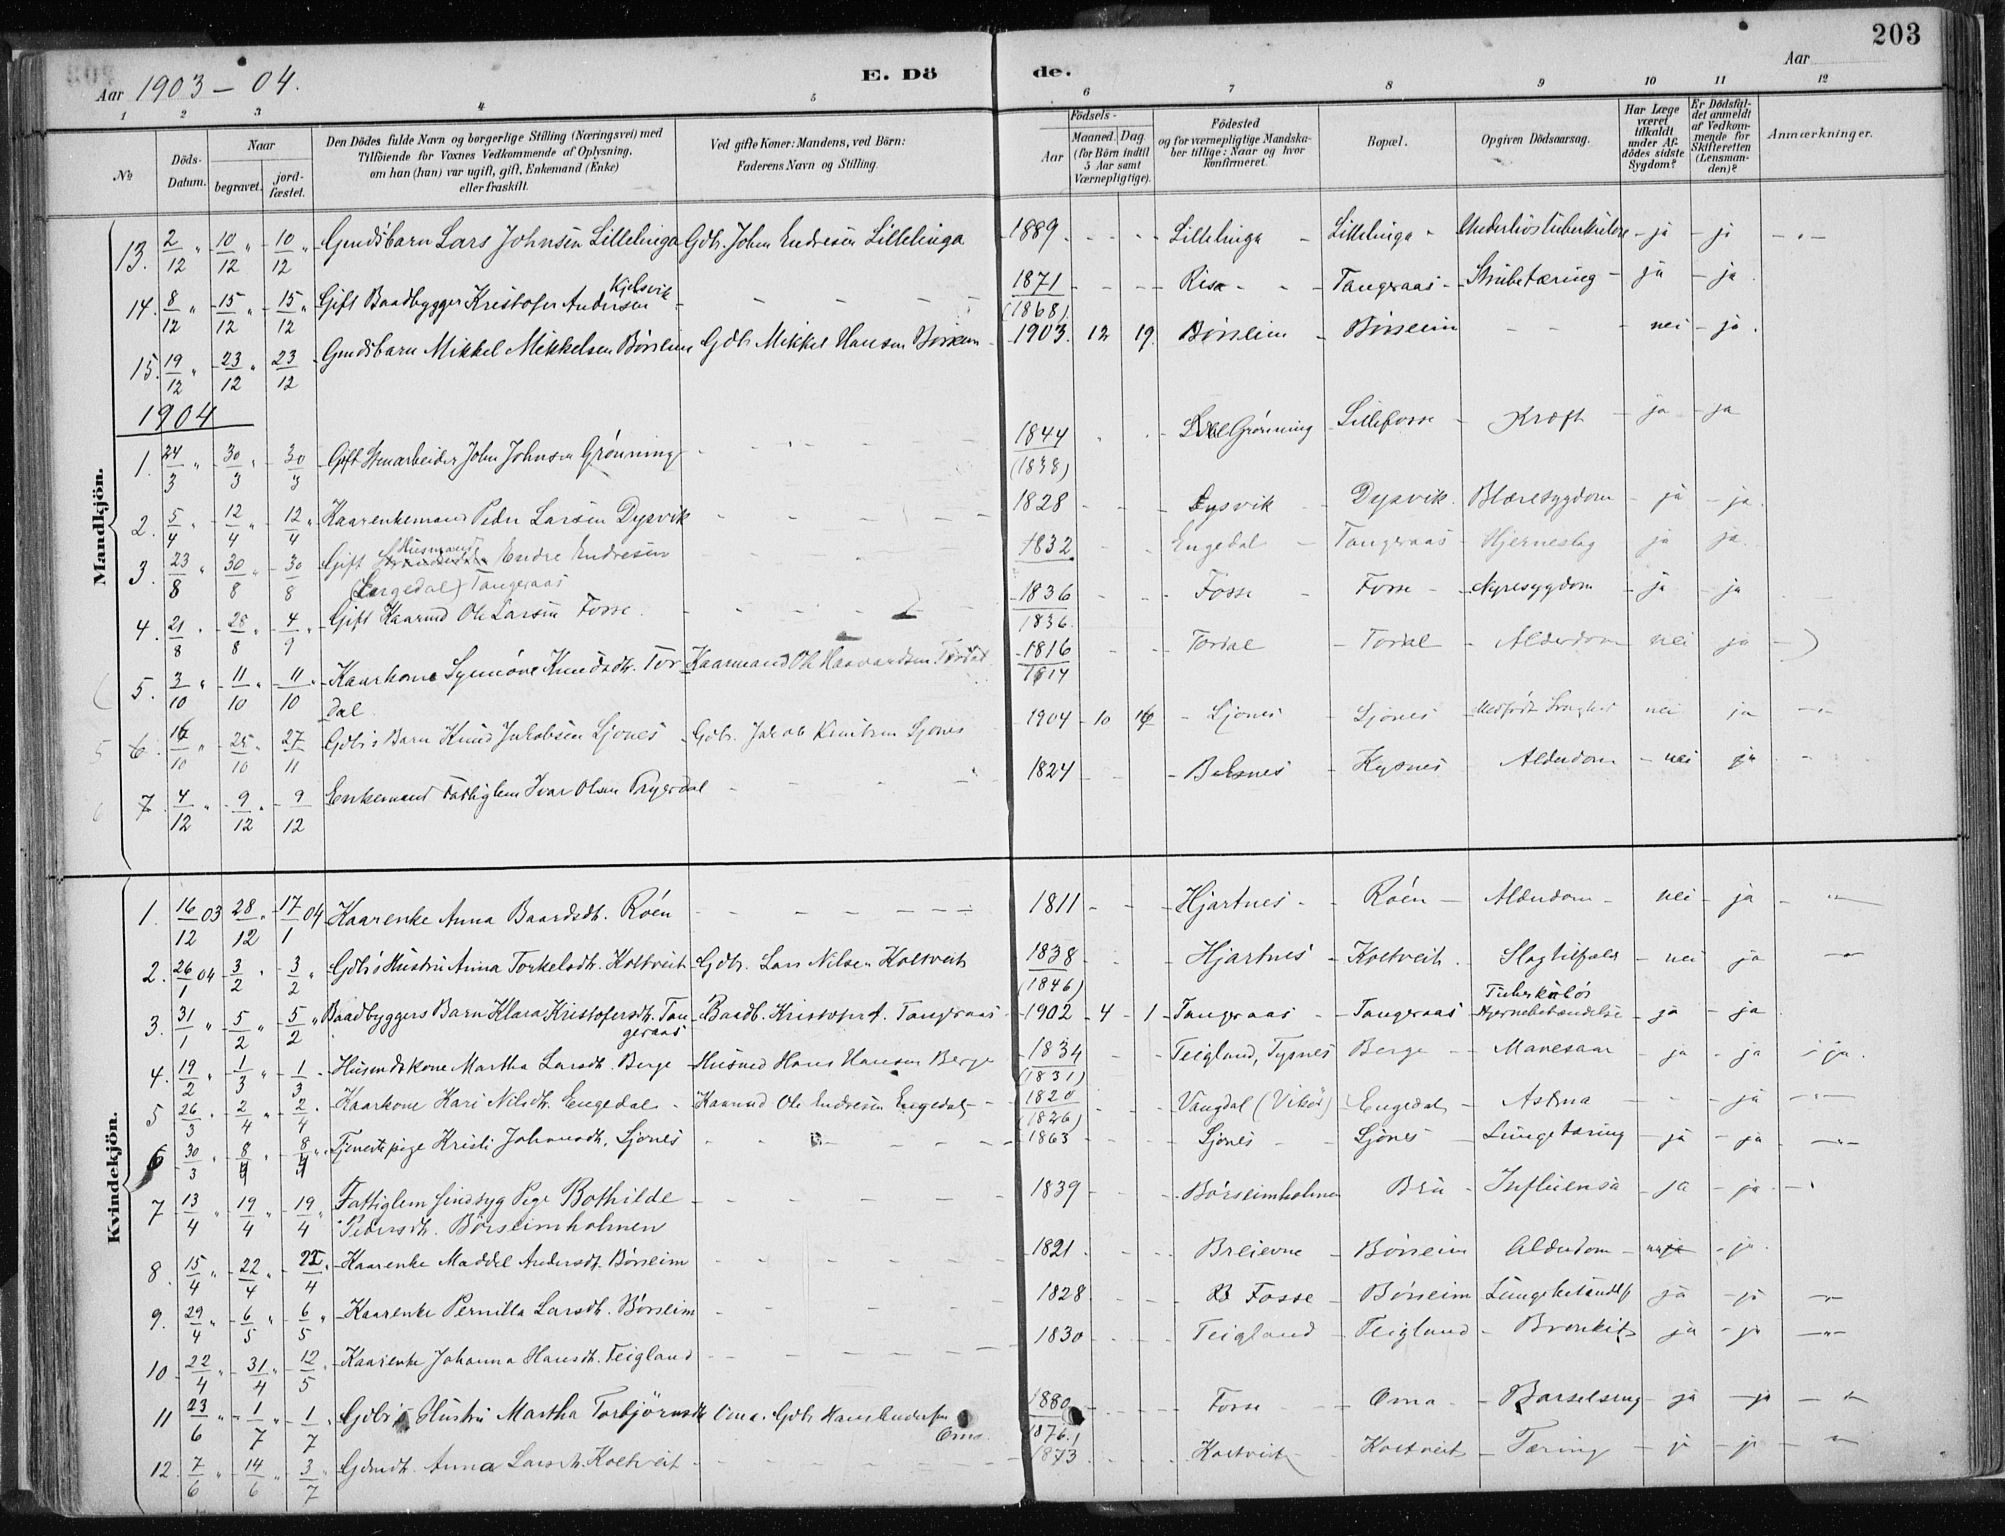 203
Aar 1903 - 04. E. Dö de. Aar
1 2 3 4 5 6 7 8 9 10 11 12
No Döds-Datum. Naar begravet. jordfæstet. Den Dödes fulde Navn og borgerlige Stilling (Næringsvei) med Tilföiende for Voxnes Vedkommende af Oplysning, om han (hun) var ugift, gift, Enkemand (Enke) eller fraskilt. Ved gifte Koner: Mandens, ved Börn: Faderens Navn og Stilling. Födsels- Aar Maaned. Dag. (for Börn indtil 5 Aar samt Værnepligtige). Födested og for værnepligtige Mandskaber tillige: Naar og hvor konfirmeret. Bopæl. Opgiven Dödsaarsag. Har Læge været tilkaldt under Afdödes sidste Sygdom? Er Dödsfaldet anmeldt af Vedkommende for Skifteretten (Lensmanden)? Anmærkninger.
Mandkjön.
13. 2/12 " 10/12 " 10/12 " Gmdsbarn Lars Johnsen Lillelinga Gdb. John Endresen Lillelinga 1889 - - - Lillelinga - Lillelinga - Underlivstuberkulose - ja - ja - " -
14. 8/12 " 15/12 " 15/12 " Gift Baadbygger Kristofer Andersen Kjelsvik - - - - 1871 (1868) - - - Risa - Tangeraas - Strubetæring - ja - ja
15. 19/12 " 23/12 " 23/12 Gmdsbarn Mikkel Mikkelsen Börseim Gdb. Mikkel Hansen Börseim 1903. 12 19. Börseim - Börseim - - nei - ja.
1904
1. 24/3 " 30/3 " 30/3 Gift Stenarbeider John Johnsen Grönning - - - 1844 (1838) - Grönning Lillefosse - Kræft - ja - ja
2. 5/4 " 12/4 " 12/4 " Kaarenkemand Peder Larsen Dysvik - - - 1828 - - Dysvik - Dysvik. Blæresygdom - ja - ja.
3. 23/8 " 30/8 " 30/8 Gift Husmand Endre Endresen (Engedal) Tangeraas - - - 1832 - - Engedal - Tangeraas - Hjerneslag ja ja.
4. 21/8 " 28/8 " 4/9 " Gift Kaarmd Ole Larsen Fosse. - - - 1836 1836. - - Fosse - Fosse - Nyresygdom - ja - ja
5. 3/10 " 11/10 - 11/10 " Kaarkone Synnöve Knudsdtr. Tordal Kaarmand Ole Haavardsen Tordal 1816 1814 - - Tordal - Tordal - Alderdom nei ja - )
5 6. 16/10 " 25/10 27/11 Gdb's Barn Knud Jakobsen Ljones Gdb. Jakob Knutsen Ljones 1904 - 10 16 - Ljones - Ljones - Medfödt Svaghed nei ja - " -
6 7. 4/12 " 9/12 " 9/12 Enkemand Fattiglem Ivar Olsen - - 1824 - - - Belsnes - Kysnes Alderdom - nei ja "
Kvindekjön.
1. 16/12 03 28/12 " 17/1 04 Kaarenke Anna Baardsdtr. Roén - - - - - - 1811 - - - Hjartnes - - Roén - Alderdom - nei - ja - "
2. 26/1 04 3/2 " 3/2 " Gdb's Hustru Anna Torkelsdtr. Koltveit Gdb. Lars Nilsen Koltveit 1838 (1846) - - Hjartnes - Koltveit. - Slagtilfælde - nei ja - " -
3. 31/1 " 5/2 " 5/2 " Baadbyggers Barn Klara Kristofersdtr. Tangeraas Baadb. Kristofer A. Tangeraas 1902 - 4 - 1 - Tangeraas - Tangeraas Tuberkulös Hjernebetændelse - ja - ja
4. 19/2 " 1/3 " 1/3 - Husmdskone Martha Larsdtr. Berge Husmd Hans Hansen Berge 1834 (1831) - - Teigland, Tysnes Berge - Mavesaar - ja - ja - ja.
5 26/3 " 2/4 " 2/4 " Kaarkone Kari Nilsdtr. Engedal - Kaarmd Ole Endresen Engedal 1820 (1826) - - Vangdal (Vikör) Engedal - Astma - - ja - " -
6 30/3 " 8/4 " 8/4 " Tjenestepige Kristi Johansdtr. Ljones - - - 1863 - - Ljones - Ljones - Lungetæring - ja - ja - " -
7 13/4 " 19/4 " 19/4 Fattiglem sindssyg Pige Bothilde Pedersdtr. Börseimholmen - - - 1839 - - - Börseimholmen Bru - Influensa - ja - ja - "
8. 15/4 " 22/4 " 22/4 " Kaarenke Maddel Andersdtr. Börseim - - - 1821. - - - Breievne - Börseim Alderdom - nei - ja.
9. 29/4 " 6/5 " 6/5 " Kaarenke Pernilla Larsdtr. Börseim - - - 1828 - - - Fosse - Börseim Lungebetændelse ja - ja - " -
10. 22/4 " 31/4 - 12/5 Kaarenke Johanna Hansdtr. Teigland - - - 1830 - - - Teigland - Teigland - Bronkit ja - ja - " -
11 23/6 " 1/7 " 1/7 " Gdb's Hustru Martha Torbjörnsdtr Oma. Gdb Hans Andersen Oma. 1880 (1876) - - Fosse - Oma - Barselseng - ja - ja - " -
12. 7/6 " 14/6 " 3/7 " Gdmdtr. Anna Larsdtr. Koltveit - - - 1873 - - - Koltveit - Koltveit - Tæring - ja - ja - "